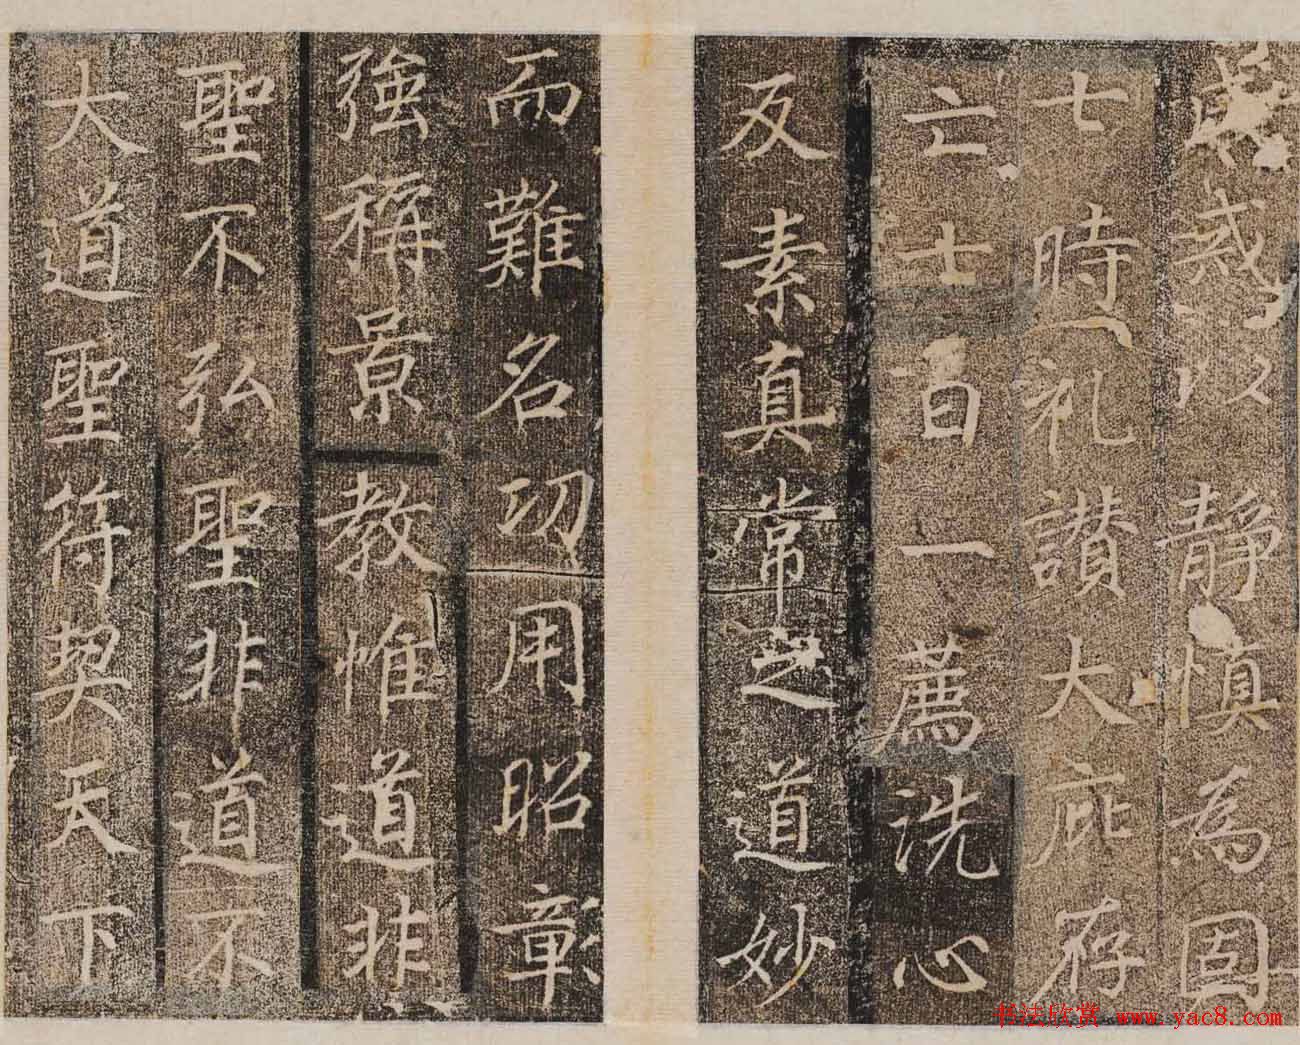 戒以靜慎為固
七時礼讃大庇存
亡士日一薦洗心
反素真常之道妙
而難名功用昭彰
強稱景教惟道非
聖不弘聖非道不
大道聖符契天下
书法欣赏 www.yac8.com